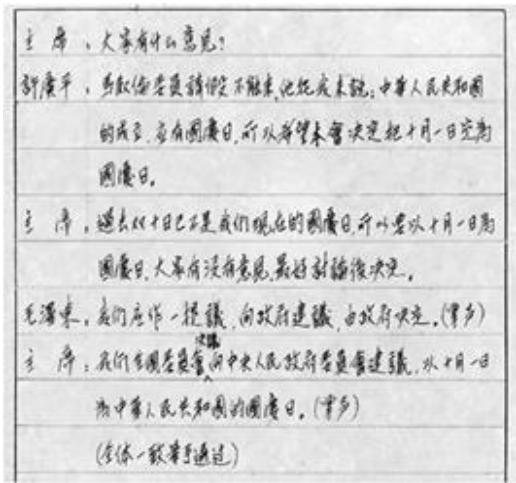 主 席：大家有什么意見？
許廣平：馬叙倫委員請假不能來，他托我來說：中華人民共和國
的成立，应有國慶日，所以希望本會决定把十月一日定為
國慶日。
主 席：過去双十日已不是我们現在的國慶日，所以要以十月一日為
國慶日，大家有没有意見，最好討論後决定。
毛澤東：我们应作一提議，向政府建議，由政府决定。（掌声）
决議
主 席：我们全國委員會向中央人民政府委員會建議，以十月一日
為中華人民共和國的國慶日。（掌声）
（全体一致舉手通过）